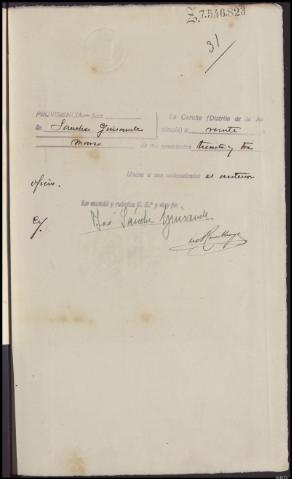 Z.7.546.823
31
PROVIDENCIA=Juez La Coruña (Distrito de la Au
Sr. Sanchez Guisande diencia) a veinte
marzo de mil novecientos treinta y tres
Unase a sus antecedentes el anterior
oficio.
Lo mandó y rubrica S. Sª y doy fe.
José Sánchez Guisande